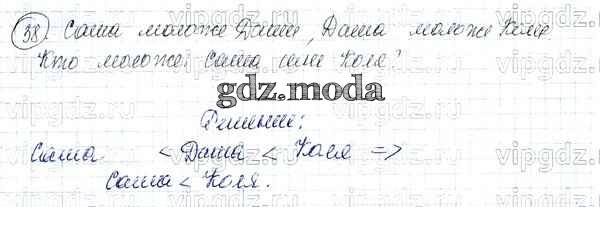 38. Саша моложе Даши, Даша моложе Коли
Кто моложе: Саша или Коля?
gdz.moda
Решение:
Саша < Даша < Коля =>
Саша < Коля.